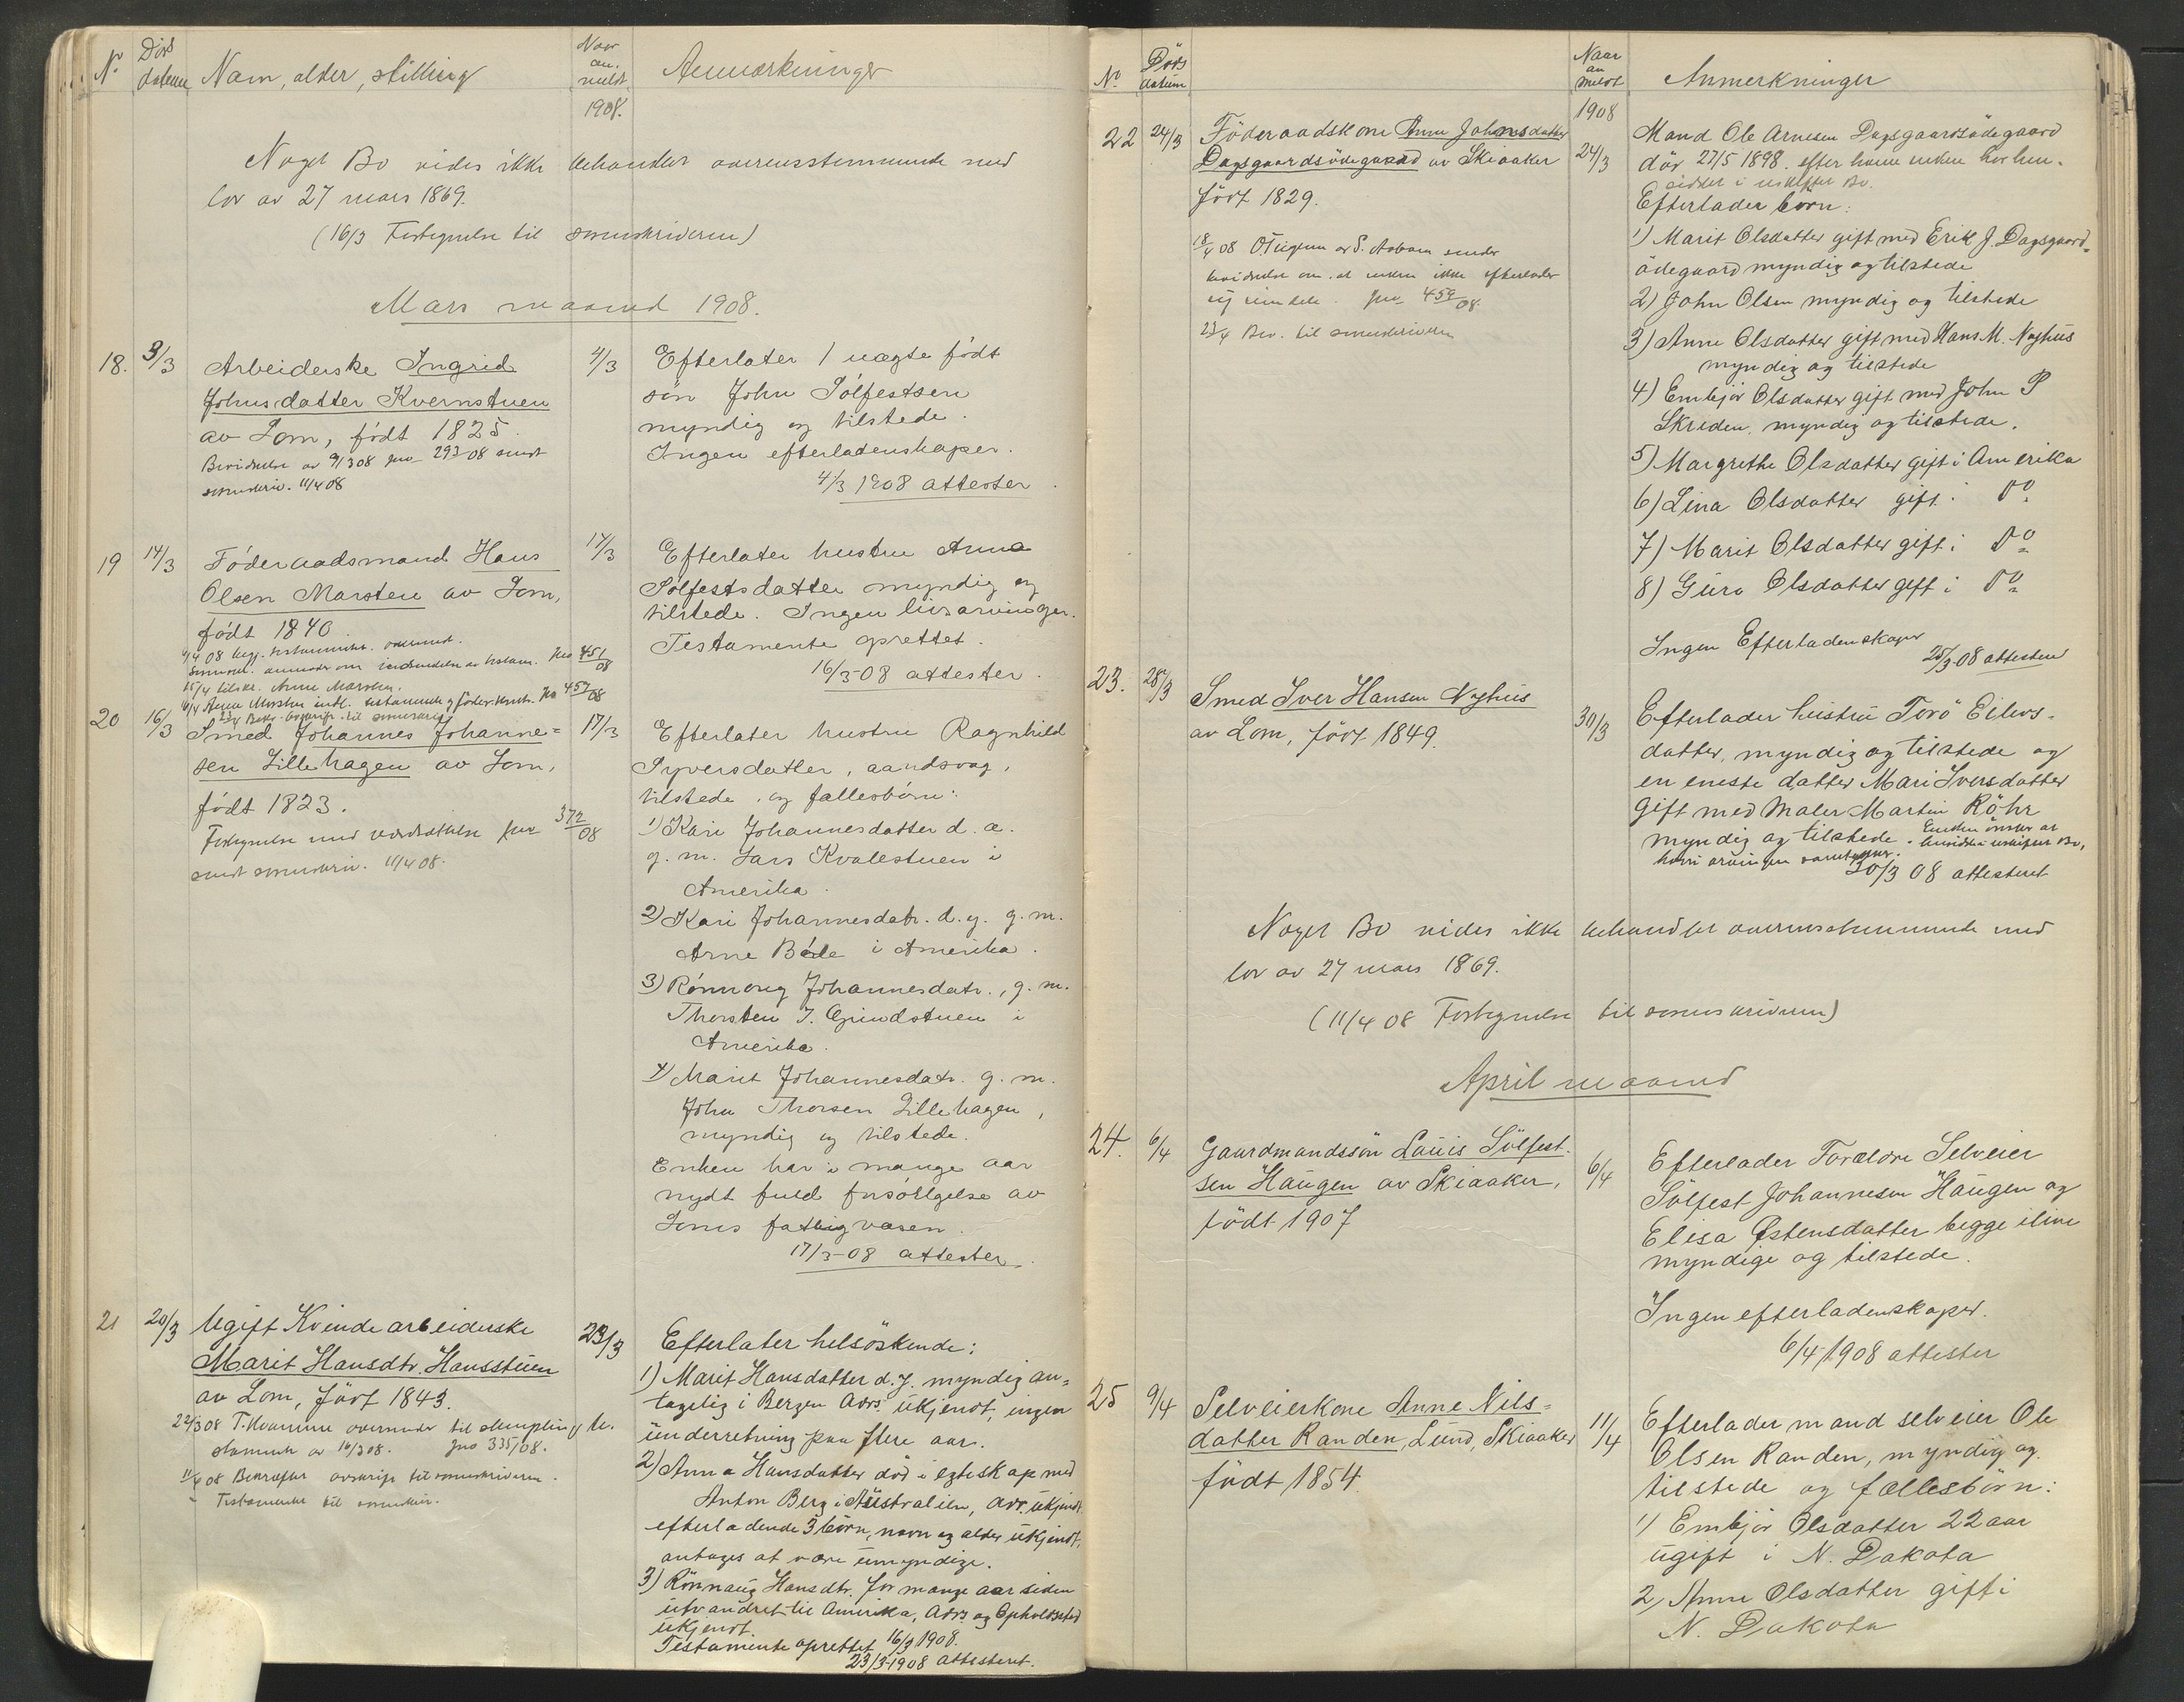 No
Døds
datum
Navn, alder, stilling
Naar
an-
meldt
Anmærkninger
1908.
Noget Bo vides ikke behandlet overensstemmende med
lov av 27 mars 1869.
(16/3 Fortegnelse til sorenskriveren)
Mars maaned 1908.
18. 3/3
Arbeiderske Ingrid
Johnsdatter Kvernstuen
av Lom, født 1825.
Bevidnelse av 9/3 08 jno 293/08 sendt
sorenskriv. 11/4 08
4/3
Efterlater 1 uægte født
søn John Sølfestsen
myndig og tilstede.
Ingen efterladenskaper.
4/3 1908 attester
19 14/3
Føderaadsmand Hans
Olsen Marsten av Lom,
født 1840
15/4 tilskr. Anne Marsten.
17/3
Efterlater hustru Anna
Sølfestsdatter myndig og
tilstede. Ingen livsarvinger.
Testamente oprettet.
16/3-08 attester.
20 16/3
Smed Johannes Johanne=
sen Lillehagen av Lom,
født 1823.
Fortegnelse med værdsættelse jno 372/08
sendt sorenskriv. 11/4 08.
17/3
Efterlater hustru Ragnhild
Syversdatter, aandsvag,
tilstede, og fællesbørn:
1) Kari Johannesdatter d. æ.
g. m. Lars Kvalestuen i
Amerika.
2) Kari Johannesdatr. d. y. g. m.
Arne Bøle i Amerika.
3) Rønnoug Johannesdatr., g. m.
Thorsten J. Grindstuen i
Amerika.
4) Marit Johannesdatr. g. m.
John Thorsen Lillehagen,
myndig og tilstede.
Enken har i mange aar
nydt fuld forsørgelse av
Loms fattigvæsen.
17/3-08 attester.
21 20/3
Ugift Kvinde arbeiderske
Marit Hansdtr. Hansstuen
av Lom, født 1843.
stamente av 16/3 08. jno 335/08.
11/4 08 Bekræftet avskrift til sorenskriveren.
Testamente til sorenskr.
23/3
Efterlater helsøskende:
1) Marit Hansdatter d. y. myndig an=
tagelig i Bergen Adrs. ukjendt, ingen
underretning paa flere aar.
2) Anna Hansdatter død i egteskap med
Anton Berg i Australien, adr. ukjendt
efterladende 3 børn, navn og alder ukjendt,
antages at være umyndige.
3) Rønnaug Hansdtr. for mange aar siden
utvandret til Amerika, Adrs og Opholdssted
ukjendt.
Testamente oprettet 16/3 1908.
23/3-1908 attesteret.
No
Døds
datum
Naar
an
meldt
Anmerkninger
1908
22 24/3
Føderaadskone Anne Johnsdatter
Dagsgaardsødegaard av Skiaaker
født 1829.
bevidnelse om at enken ikke efterlader
sig eiendele. jno 459/08.
23/4 Bev. til sorenskriveren
24/3
Mand Ole Arnesen Dagsgaardsødegaard
død 27/5 1898. efter hvem enken har hen-
siddet i uskiftet Bo.
Efterlader børn:
1) Marit Olsdatter gift med Erik J. Dagsgaard=
ødegaard myndig og tilstede
2) John Olsen myndig og tilstede
3) Anne Olsdatter gift med Hans M. Nyhus
myndig og tilstede
4) Embjør Olsdatter gift med John P
Skreden, myndig og tilstede.
5) Margrethe Olsdatter gift i Amerika
6) Lina Olsdatter gift i Do
7) Marit Olsdatter gift i Do
8) Guro Olsdatter gift i Do
Ingen Efterladenskaper
25/3-08 attesten
23. 28/3
Smed Iver Hansen Nyhus
av Lom, født 1849.
30/3
Efterlader hustru Torø Eilevs-
datter, myndig og tilstede og
en eneste datter Mari Iversdatter
gift med Maler Martin Röhr
myndig og tilstede. Enken ønsker at
hensidde i uskiftet Bo,
hvori arvingen samtykker.
30/3 08 attesteret
Noget Bo vides ikke behandlet overensstemmende med
lov av 27 mars 1869.
(11/4 08 Fortegnelse til sorenskriveren)
April maaned
24. 6/4
Gaardmandssøn Louis Sølfest-
sen Haugen av Skiaaker,
født 1907
6/4
Efterlader Forældre Selveier
Sølfest Johannesen Haugen og
Elisa Østensdatter begge ilive
myndige og tilstede.
Ingen efterladenskaper.
6/4 1908 attester
25 9/4
Selveierkone Anne Nils=
datter Randen, Lund, Skiaaker
født 1854.
11/4
Efterlader mand selveier Ole
Olsen Randen, myndig og
tilstede og fællesbørn:
1) Embjør Olsdatter 22 aar
ugift i N. Dakota
2) Anne Olsdatter gift i
N. Dakota